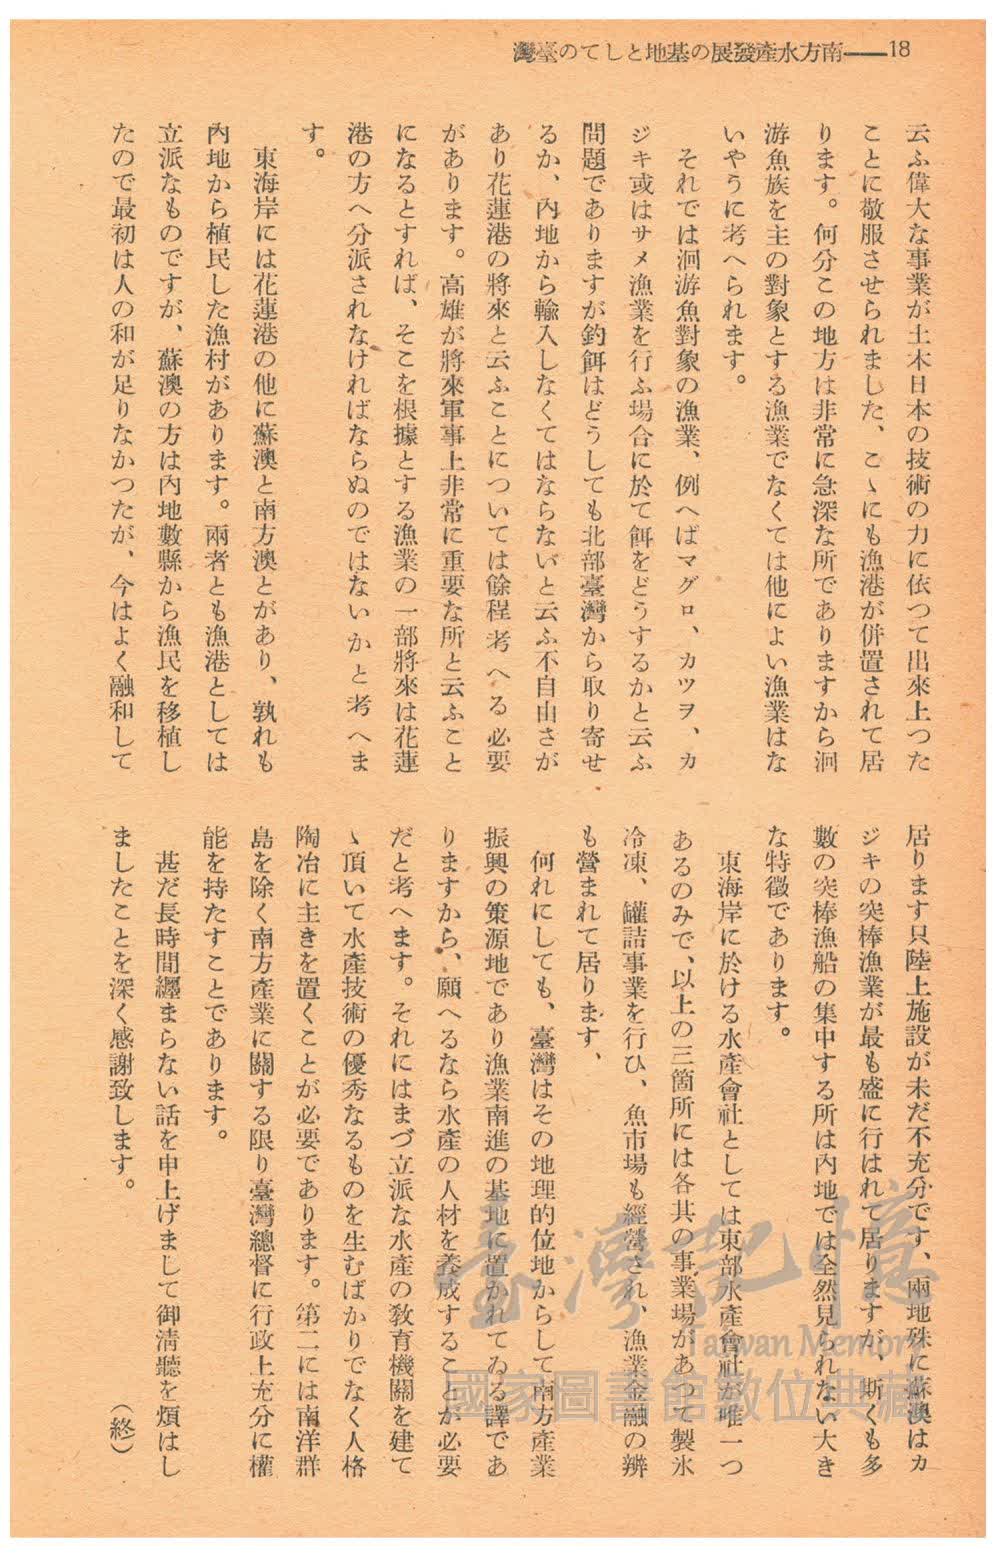 18——南方水產發展の基地としての臺灣
云ふ偉大な事業が土木日本の技術の力に依つて出來上つた
ことに敬服させられました、こゝにも漁港が併置されて居
ります。何分この地方は非常に急深な所でありますから洄
游魚族を主の對象とする漁業でなくては他によい漁業はな
いやうに考へられます。
それでは洄游魚對象の漁業、例へばマグロ、カツヲ、カ
ジキ或はサメ漁業を行ふ場合に於て餌をどうするかと云ふ
問題でありますが釣餌はどうしても北部臺灣から取り寄せ
るか、內地から輸入しなくてはならないと云ふ不自由さが
あり花蓮港の將來と云ふことについては餘程考へる必要
があります。高雄が將來軍事上非常に重要な所と云ふこと
になるとすれば、そこを根據とする漁業の一部將來は花蓮
港の方へ分派されなければならぬのではないかと考へま
す。
東海岸には花蓮港の他に蘇澳と南方澳とがあり、孰れも
內地から植民した漁村があります。兩者とも漁港としては
立派なものですが、蘇澳の方は內地數縣から漁民を移植し
たので最初は人の和が足りなかつたが、今はよく融和して
居ります只陸上施設が未だ不充分です、兩地殊に蘇澳はカ
ジキの突棒漁業が最も盛に行はれて居りますが、斯くも多
數の突棒漁船の集中する所は內地では全然見られない大き
な特徵であります。
東海岸に於ける水產會社としては東部水產會社が唯一つ
あるのみで、以上の三箇所には各其の事業場があつて製氷
冷凍、罐詰事業を行ひ、魚市場も經營され、漁業金融の辨
も營まれて居ります、
何れにしても、臺灣はその地理的位地からして南方產業
振興の策源地であり漁業南進の基地に置かれてゐる譯であ
りますから、願へるなら水產の人材を養成することが必要
だと考へます。それにはまづ立派な水產の敎育機關を建て
ゝ頂いて水產技術の優秀なるものを生むばかりでなく人格
陶冶に主きを置くことが必要であります。第二には南洋群
島を除く南方產業に關する限り臺灣總督に行政上充分に權
能を持たすことであります。
甚だ長時間纏まらない話を申上げまして御淸聽を煩はし
ましたことを深く感謝致します。（終）
臺灣記憶
Taiwan Memory
國家圖書館數位典藏